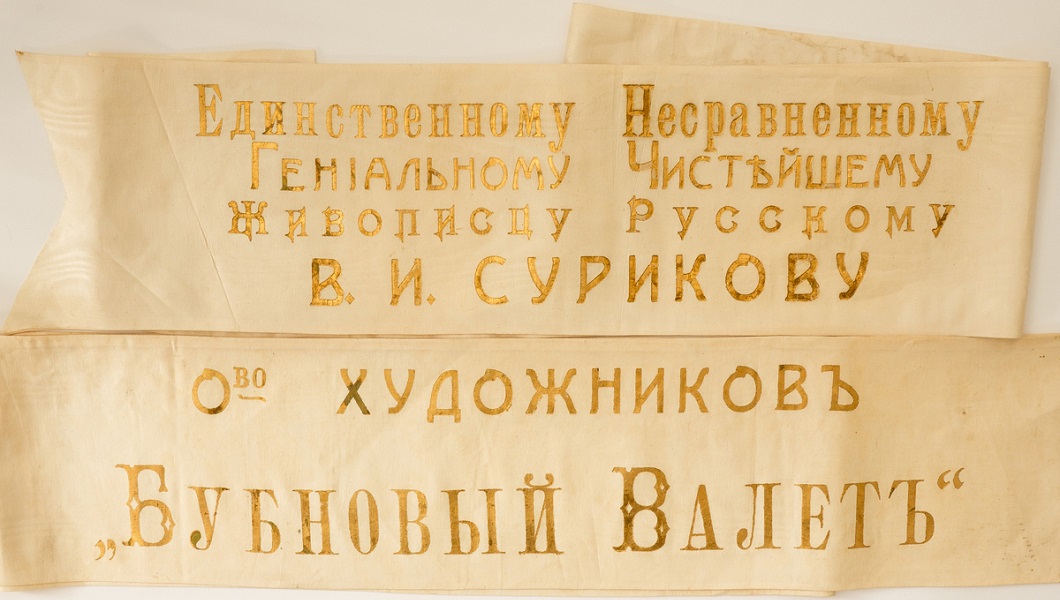 Единственному Несравненному
Геніальному Чистѣйшему
Живописцу Русскому
В. И. СУРИКОВУ
Ово ХУДОЖНИКОВЪ
„Бубновый Валетъ“